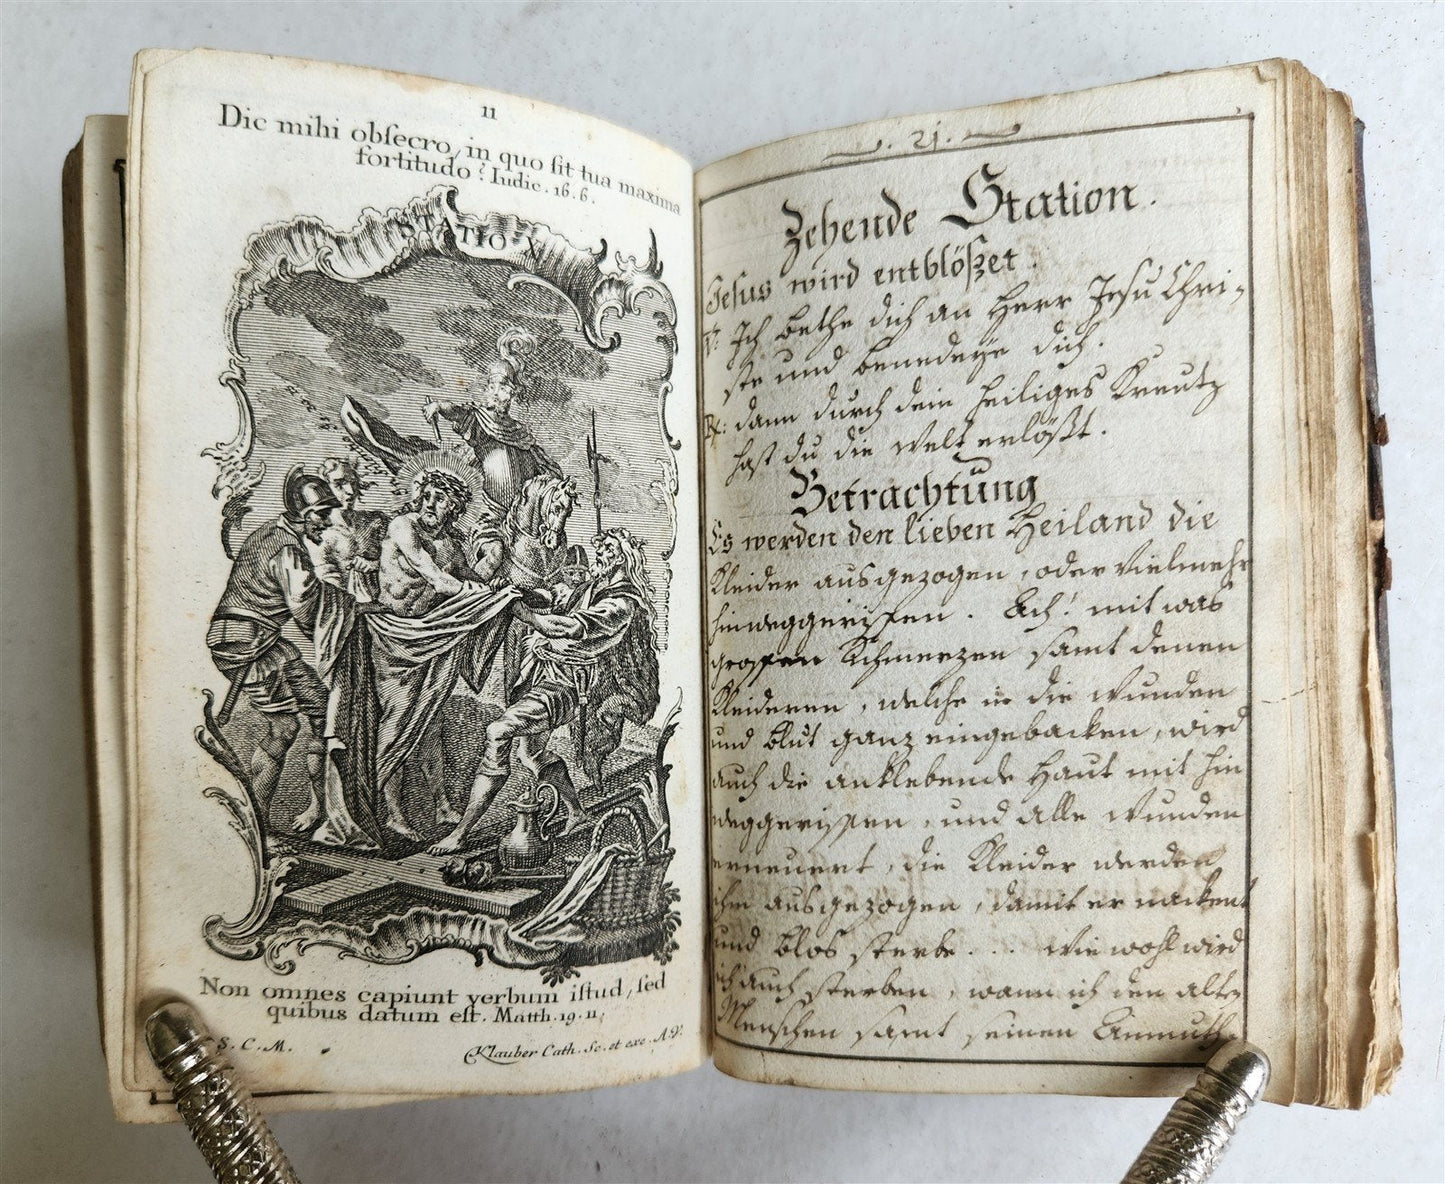 11
Dic mihi obſecro, in quo ſit tua maxima
fortitudo? Iudic. 16. 6.
STATIO X
Non omnes capiunt verbum iſtud, ſed
quibus datum eſt. Matth. 19. 11.
S. C. M.
Klauber Cath. Sc. et exc. A. V.
. 21. 
Zehende Station.
Jesus wird entblößet.
V: Ich bethe dich an Herr Jesu Chri-
ste und benedeye dich.
R: dann durch dein heiliges Kreutz
hast du die Welt erlößt.
Betrachtung
Es werden den lieben Heiland die
Kleider ausgezogen, oder vielmehr
hinweggerissen. Ach! mit was
grossen Schmerzen samt denen
Kleideren, welche in die Wunden
und Blut ganz eingebacken, wird
auch die anklebende Haut mit hin
weggerissen, und alle Wunden
erneuert, die Kleider werden
ihm ausgezogen, damit er nackent
und blos sterbe... wie wohl wird
ich auch sterben, wann ich den alten
Menschen samt seinen Anmuth-